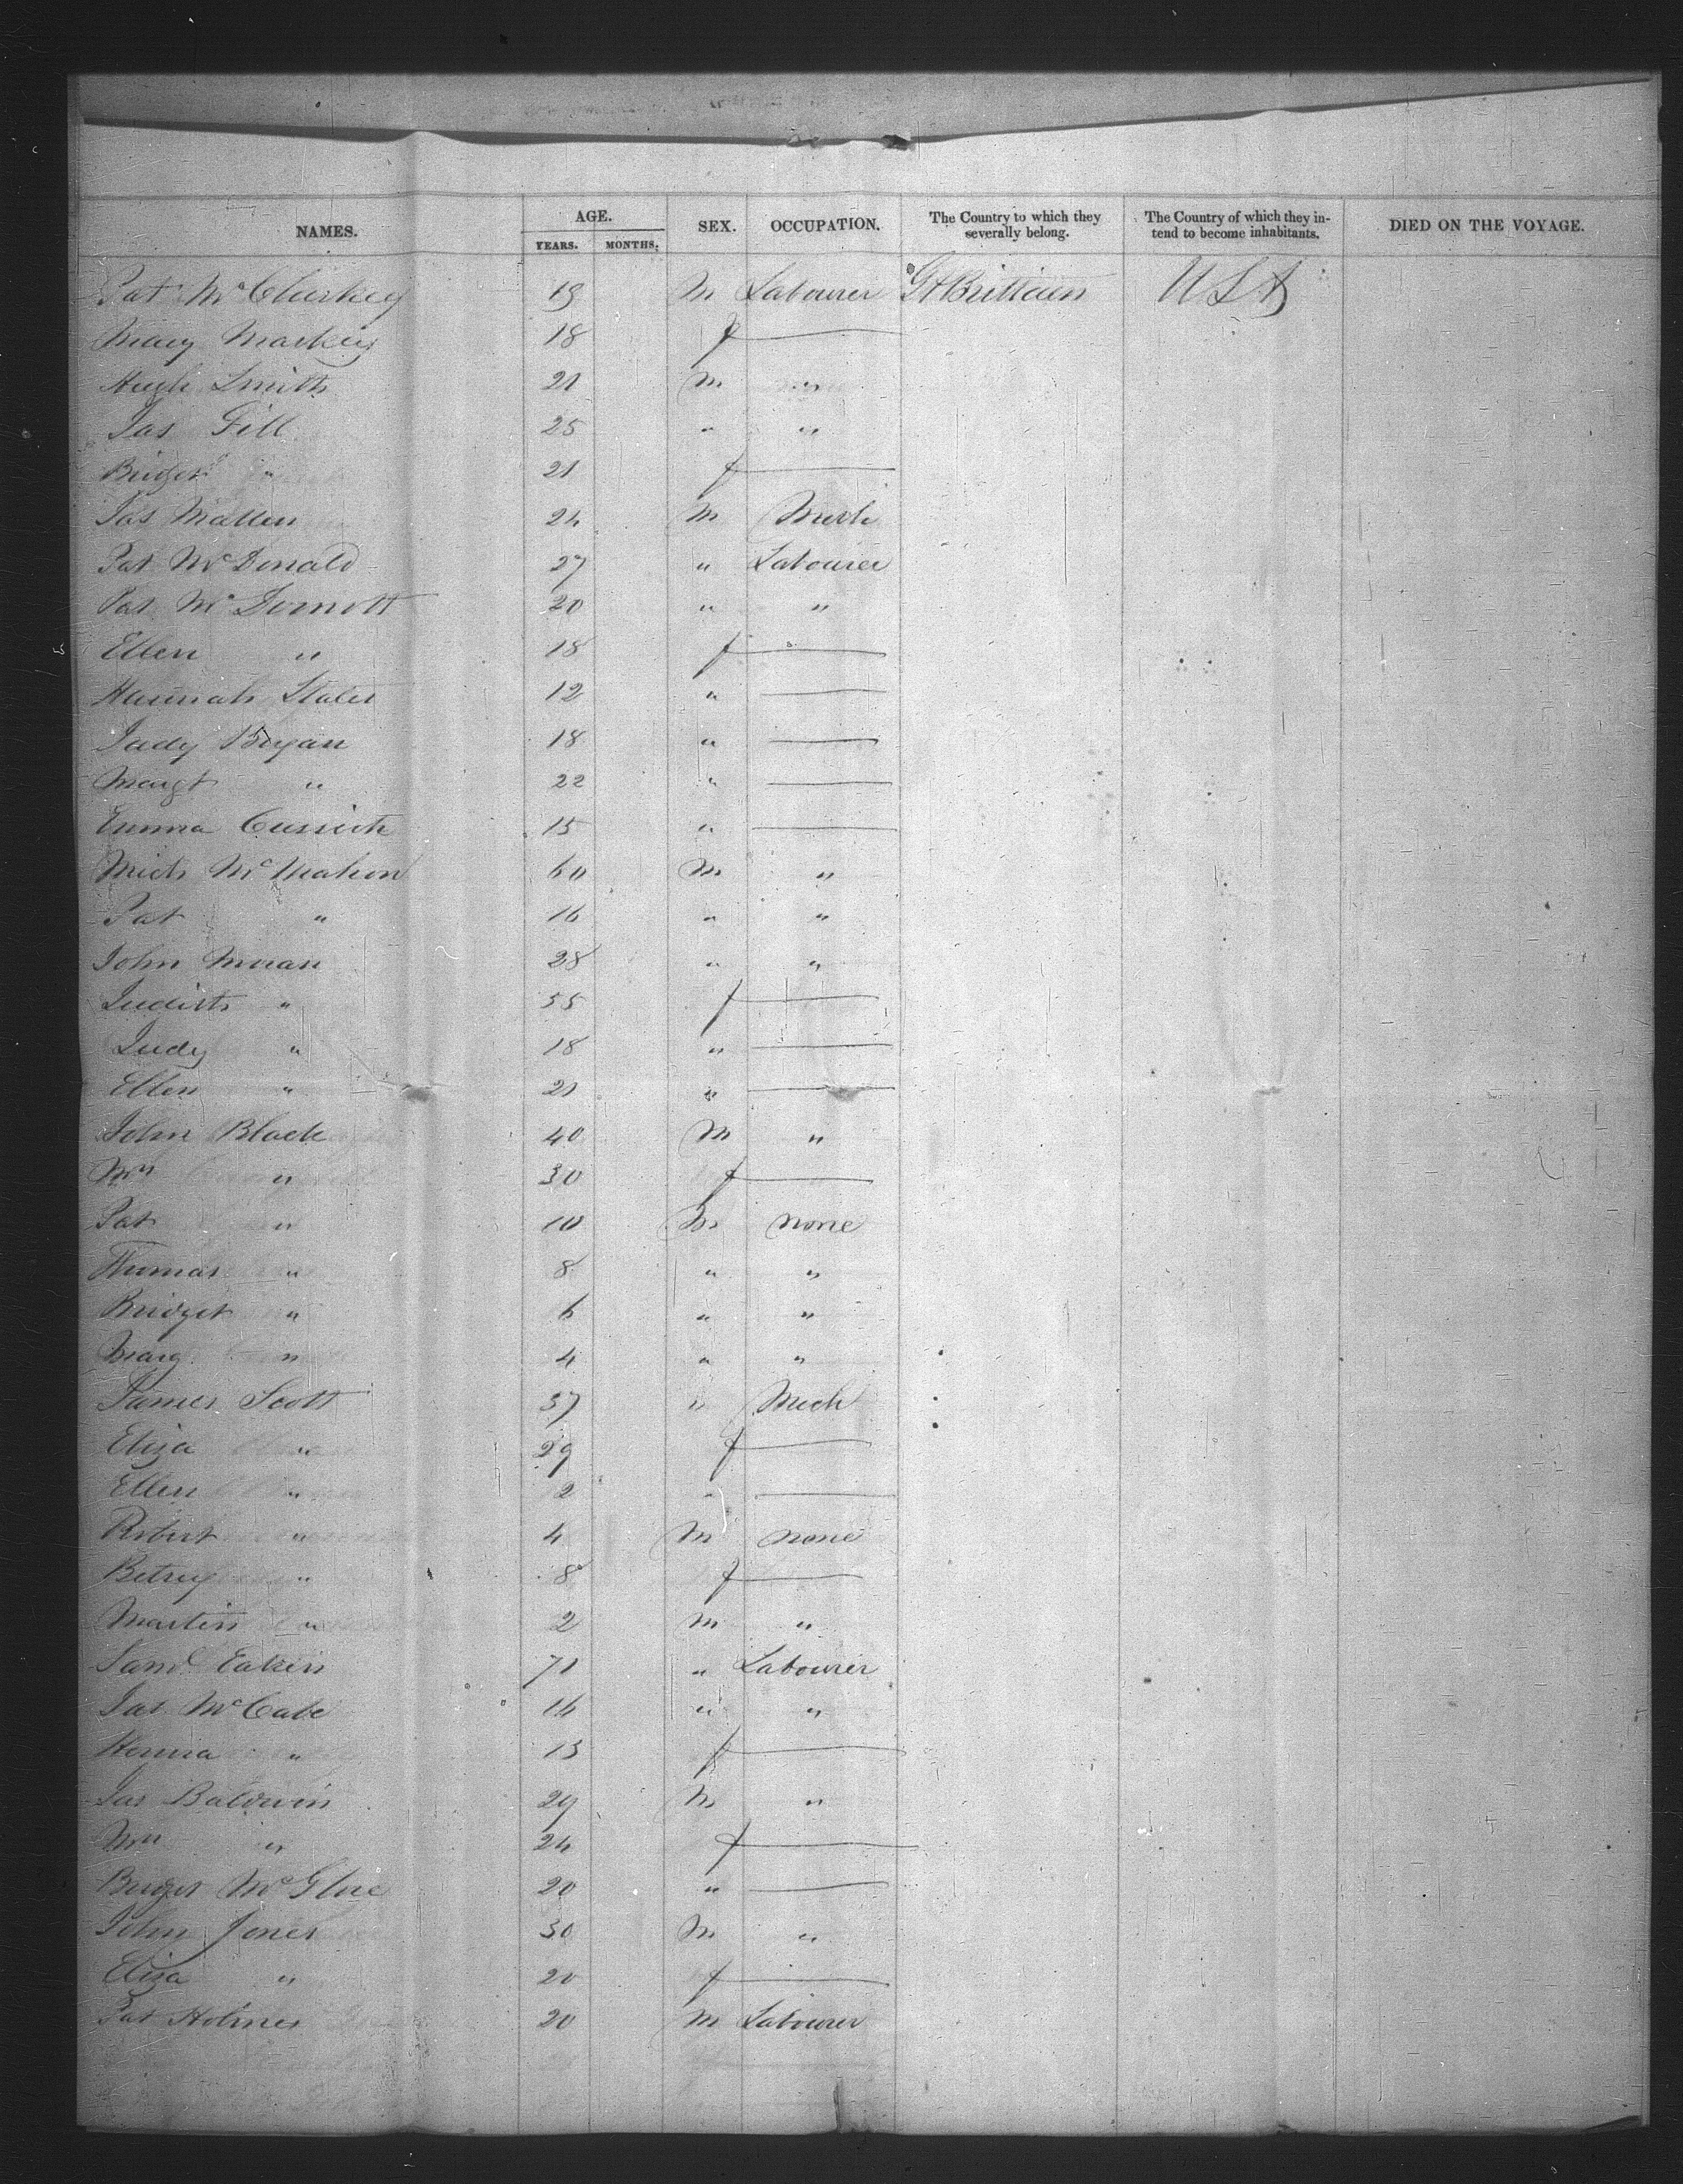 NAMES. AGE. YEARS. MONTHS. SEX. OCCUPATION. The Country to which they severally belong. The Country of which they intend to become inhabitants. DIED ON THE VOYAGE.
Pat McCluskey 19 M Labourer Gt Brittain USA
Mary Markey 18 f —
Hugh Smith 21 M "
Jas Fill 25 " "
Bridget " 21 f —
Jas Mallen 24 M Mech
Pat McDonald 27 " Labourer
Pat McDermott 20 " "
Ellen " 18 f —
Hannah Slater 12 " —
Judy Bryan 18 " —
Margt " 22 " —
Emma 15 " —
Mich McMahon 60 M "
Pat " 16 " "
John Moran 28 " "
Judith " 55 f —
Judy " 18 " —
Ellen " 21 " —
John Black 40 M "
Mrs " 30 f —
Pat " 10 M none
Thomas " 8 " "
Bridget " 6 " "
Marg " 4 " "
James Scott 37 " Mech
Eliza " 29 f —
Ellen " 2 " —
Robert " 4 M none
Betsey " 8 f —
Martin " 2 M "
Saml Eakin 71 " Labourer
Jas McCabe 16 " "
" 13 f —
Jas Baldwin 29 M "
Mrs " 24 f —
Bridget 20 " —
John Jones 30 M "
Eliza " 20 f —
Pat Holmes 20 M Labourer